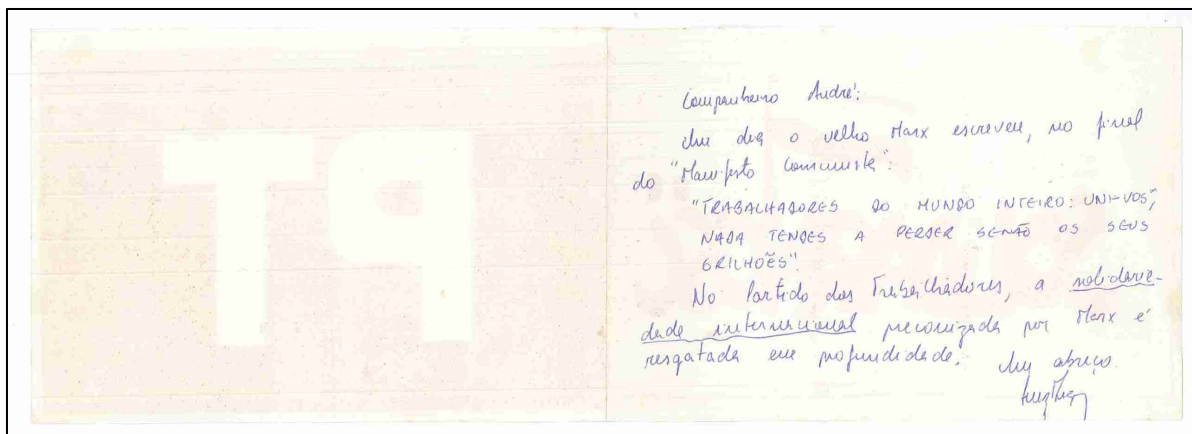 TP
Companheiro André:
Um dia o velho Marx escreveu, no final
do "Manifesto Comunista":
"TRABALHADORES DO MUNDO INTEIRO: UNI-VOS",
NADA TENDES A PERDER SENÃO OS SEUS
GRILHÕES".
No Partido dos Trabalhadores, a solidarie-
dade internacional preconizada por Marx é
resgatada em profundidade. Um abraço.